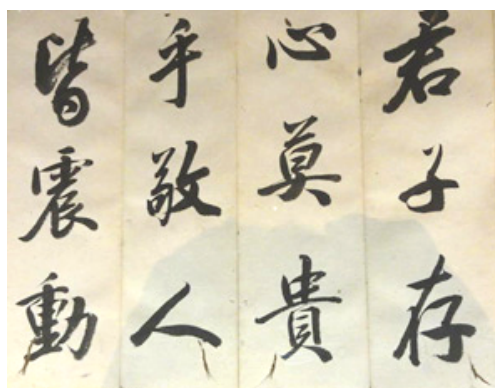 君子存
心莫貴
乎敬人
皆震動